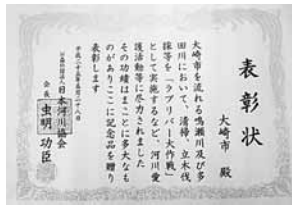 表彰状
大崎市 殿
大崎市を流れる鳴瀬川及び多
田川において、清掃、立木伐
採等を「ラブリバー大作戦」
として実施するなど、河川愛
護活動等に尽力されました
その功績はまことに多大なも
のがありここに記念品を贈り
表彰します
平成二十五年五月二十八日
公益社団法人日本河川協会
会長 虫明 功臣